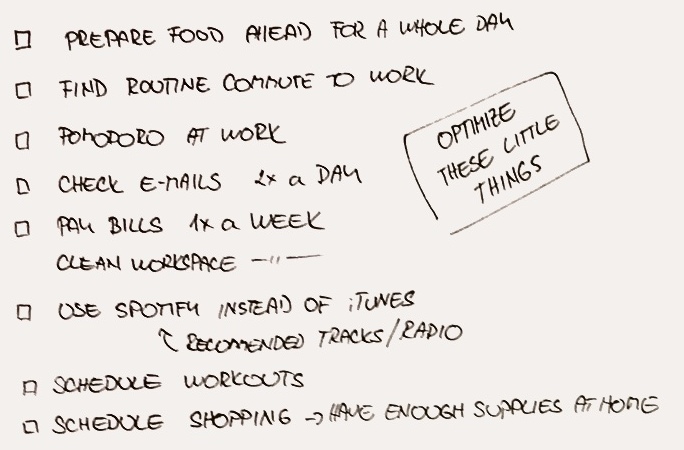 PREPARE FOOD AHEAD FOR A WHOLE DAY
FIND ROUTINE COMMUTE TO WORK
POMODORO AT WORK
CHECK E-MAILS 2x a DAY
PAY BILLS 1x a WEEK
CLEAN WORKSPACE —"—
USE SPOTIFY INSTEAD OF iTUNES
RECOMENDED TRACKS/RADIO
SCHEDULE WORKOUTS
SCHEDULE SHOPPING → HAVE ENOUGH SUPPLIES AT HOME
OPTIMIZE
THESE LITTLE
THINGS